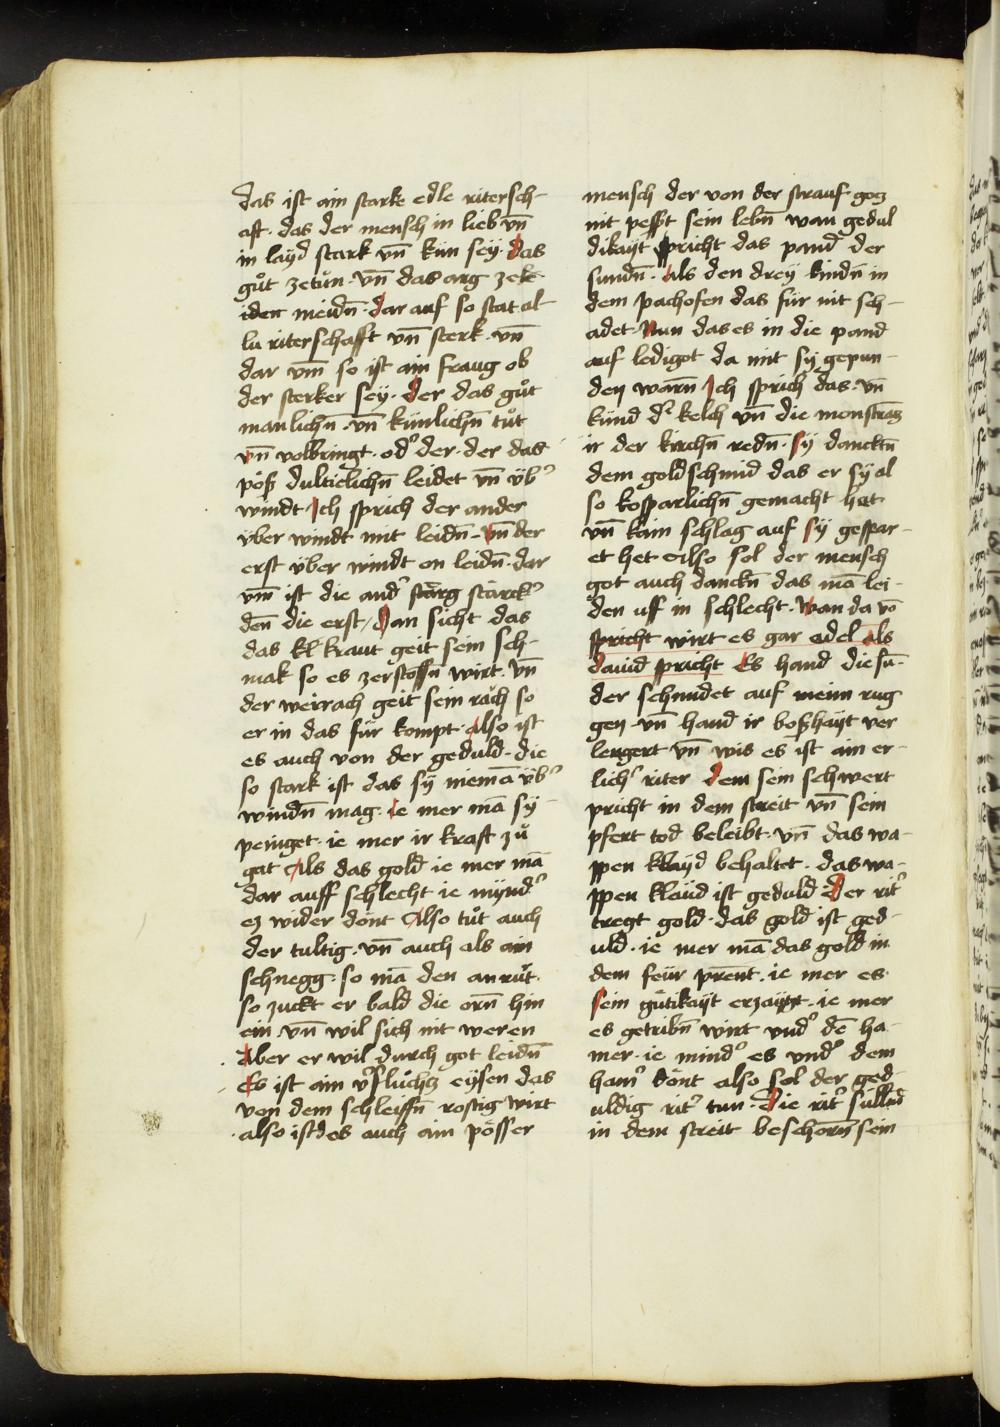 das ist ain stark edle ritersch-
aft · das der mensch in lieb vn̄
in layd stark vn̄ kün sey · das
gůt zetůn · vn̄ das arg ze le-
iden meidn̄ · dar auf so stat al-
lu riterschafft vn̄ sterk · vn̄
dar vm̄ so ist ain fraug ob
der sterker sey · der das gůt
manlichn̄ · vn̄ künlichn̄ tůt
vn̄ volbringt · od' der · der das
pöß dulticlichn̄ leidet vn̄ üb'
windt Ich sprich der ander
über windt mit leidn̄ · vn̄ der
erst über windt on leidn̄ · dar
vm̄ ist die and' starck'
den̄ die erst / Man sicht das
das kl kraut geit sein sch-
mak so es zerstossn̄ wirt · vn̄
der weirach geit sein rach so
er in das für kompt · also ist
es auch von der geduld · die
so stark ist das sÿ niemā üb'
windn̄ mag · ie mer mā sÿ
peinget · ie mer ir kraft zů
gat Als das gold ie mer mā
dar auff schlecht ie mÿnd'
ez wider dönt Also tůt auch
der tultig · vn̄ auch als ain
schnegg · so mā den an růt ·
so zuckt er bald die orn̄ hin
ein vn̄ wil sich nit weren
Aber er wil durch got leidn̄
Es ist ain v'flůchtz eÿsen das
von dem schleiffn̄ rostig wirt
also ist es auch ain pösser
mensch der von der strauf gotz
nit pesst sein lebn̄ wan gedul
dikaÿt spricht das pand der
sundn̄ · Als den dreÿ kindn̄ in
dem pachofen das für nit sch-
adet · Nun das es in die pand
auf ledigot da mit sÿ gepun-
den warn̄ Ich sprich das · vn̄
kund d' kelch vn̄ die monstrātz
in der kirchn̄ redn̄ · sÿ dancktn̄
dem goldschmid das er sÿ al
so kosparlichn̄ gemacht het
vn̄ kain schlag auf sÿ gespar-
et het Also sol der mensch
got auch danckn̄ das mā lei-
den uff in schlecht · Wan da vō
spricht wirt es gar edel als
dauid spricht Es hand die sün-
der schmidet auf meim rug
gen · vn̄ hand ir boßhaÿt ver
lengert · vn̄ wis es ist ain er-
lich' riter dem sein schwert
pricht in dem streit vn̄ sein
pfert tod beleibt · vn̄ das wa-
ppen klaÿd behaltet · das wa-
ppen klaüd ist geduld Der rit'
tregt gold · das gold ist ged-
uld · ie mer mā das gold in
dem feür pren̄t · ie mer es
sein gütikaÿt erzaÿgt · ie mer
es getribn̄ wirt vnd' dē ha-
mer · ie mind' es vnd' dem
ham' dönt also sol der ged-
uldig rit' tun · Die rit' süllnd
in dem streit beschorn̄ sein